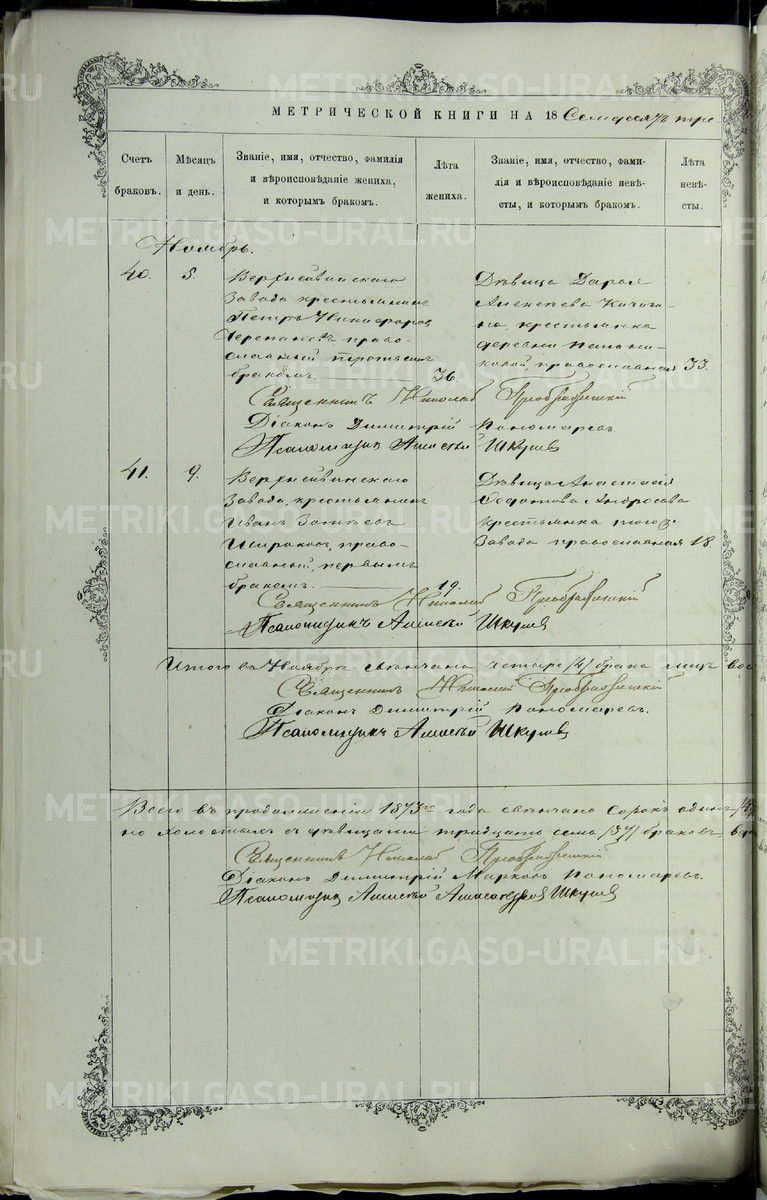 МЕТРИЧЕСКОЙ КНИГИ НА 18 Семдесятъ тре
Счетъ браковъ.
Мѣсяцъ и день.
Званіе, имя, отчество, фамилія
и вѣроисповѣданіе жениха,
и которымъ бракомъ.
Лѣта жениха.
Званіе, имя, отчество, фами-
лія и вѣроисповѣданіе невѣ-
сты, и которымъ бракомъ.
Лѣта невѣ-
сты.
Ноябрь.
40. 5.
Верхнейвинскаго
Завода крестьянинъ
Петръ Никифоровъ
Черепановъ право-
славный третьимъ
бракомъ. 36.
Дѣвица Дарья
Алексѣева
на, крестьянка
деревни
православная 33.
Священникъ Николай Преображенскій
Діаконъ Димитрій Пономаревъ
Псаломщикъ Алексѣй Шкулевъ
41. 9.
Верхнейвинскаго
Завода, крестьянинъ
Иванъ
Широковъ, право-
славный, первымъ
бракомъ. 19.
Дѣвица Анастасія
Андросова
крестьянка того-же
Завода православная 18.
Священникъ Николай Преображенскій
Псаломщикъ Алексѣй Шкулевъ
Итого въ Ноябрѣ вѣнчано четыре /4/ брака лицъ вос
Священникъ Николай Преображенскій
Діаконъ Димитрій Пономаревъ.
Псаломщикъ Алексѣй Шкулевъ
Всего въ продолженіи 1873го года вѣнчано сорокъ одинъ /4
но холостыхъ съ дѣвицами тридцать семь /37/ браковъ,
Священникъ Николай Преображенскій
Діаконъ Димитрій Марковъ Пономаревъ.
Псаломщикъ Алексѣй Александровъ Шкулевъ
METRIKI.GASO-URAL.RU